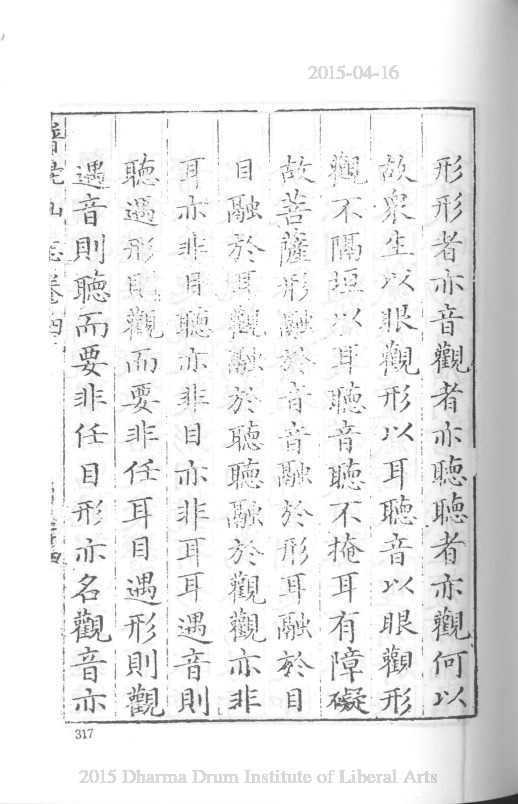 2015-04-16
形形者亦音觀者亦聽聽者亦觀何以
故衆生以眼觀形以耳聽音以眼觀形
觀不隔垣以耳聽音聽不掩耳有障礙
故菩薩形融於音音融於形耳融於目
目融於耳觀融於聽聽融於觀觀亦非
耳亦非目聽亦非目亦非耳耳遇音則
聽遇形則觀而要非任耳目遇形則觀
遇音則聽而要非任目形亦名觀音亦
普陀山志卷四
317
2015 Dharma Drum Institute of Liberal Arts